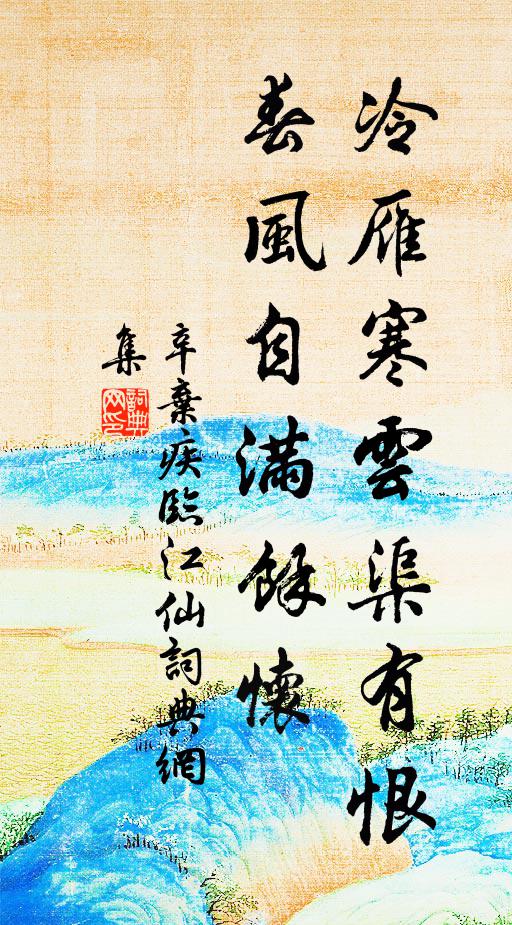 冷雁寒雲渠有恨
春風自滿餘懷
辛棄疾臨江仙詞典網
集
詞典
网印